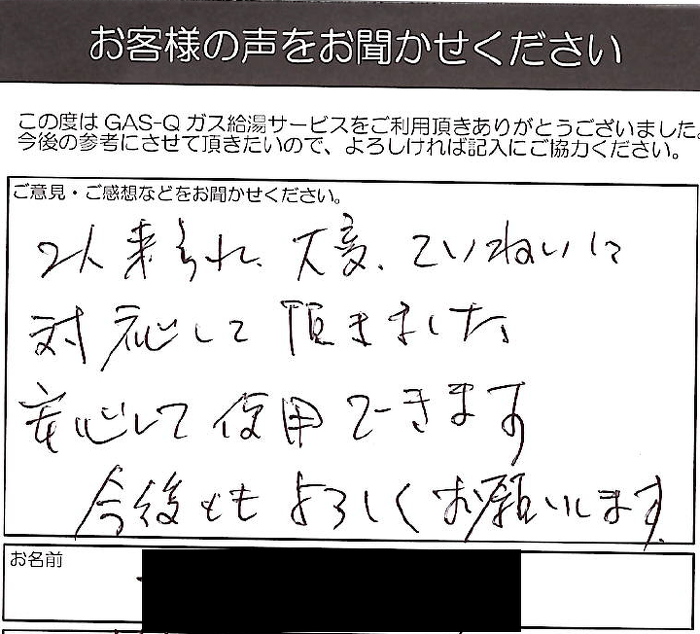 お客様の声をお聞かせください
この度は GAS-Q ガス給湯サービスをご利用頂きありがとうございました。
今後の参考にさせて頂きたいので、よろしければ記入にご協力ください。
ご意見・ご感想などをお聞かせください。
2人来られ、大変、ていねいに
対応して頂きました
安心して使用できます
今後ともよろしくお願いします。
お名前